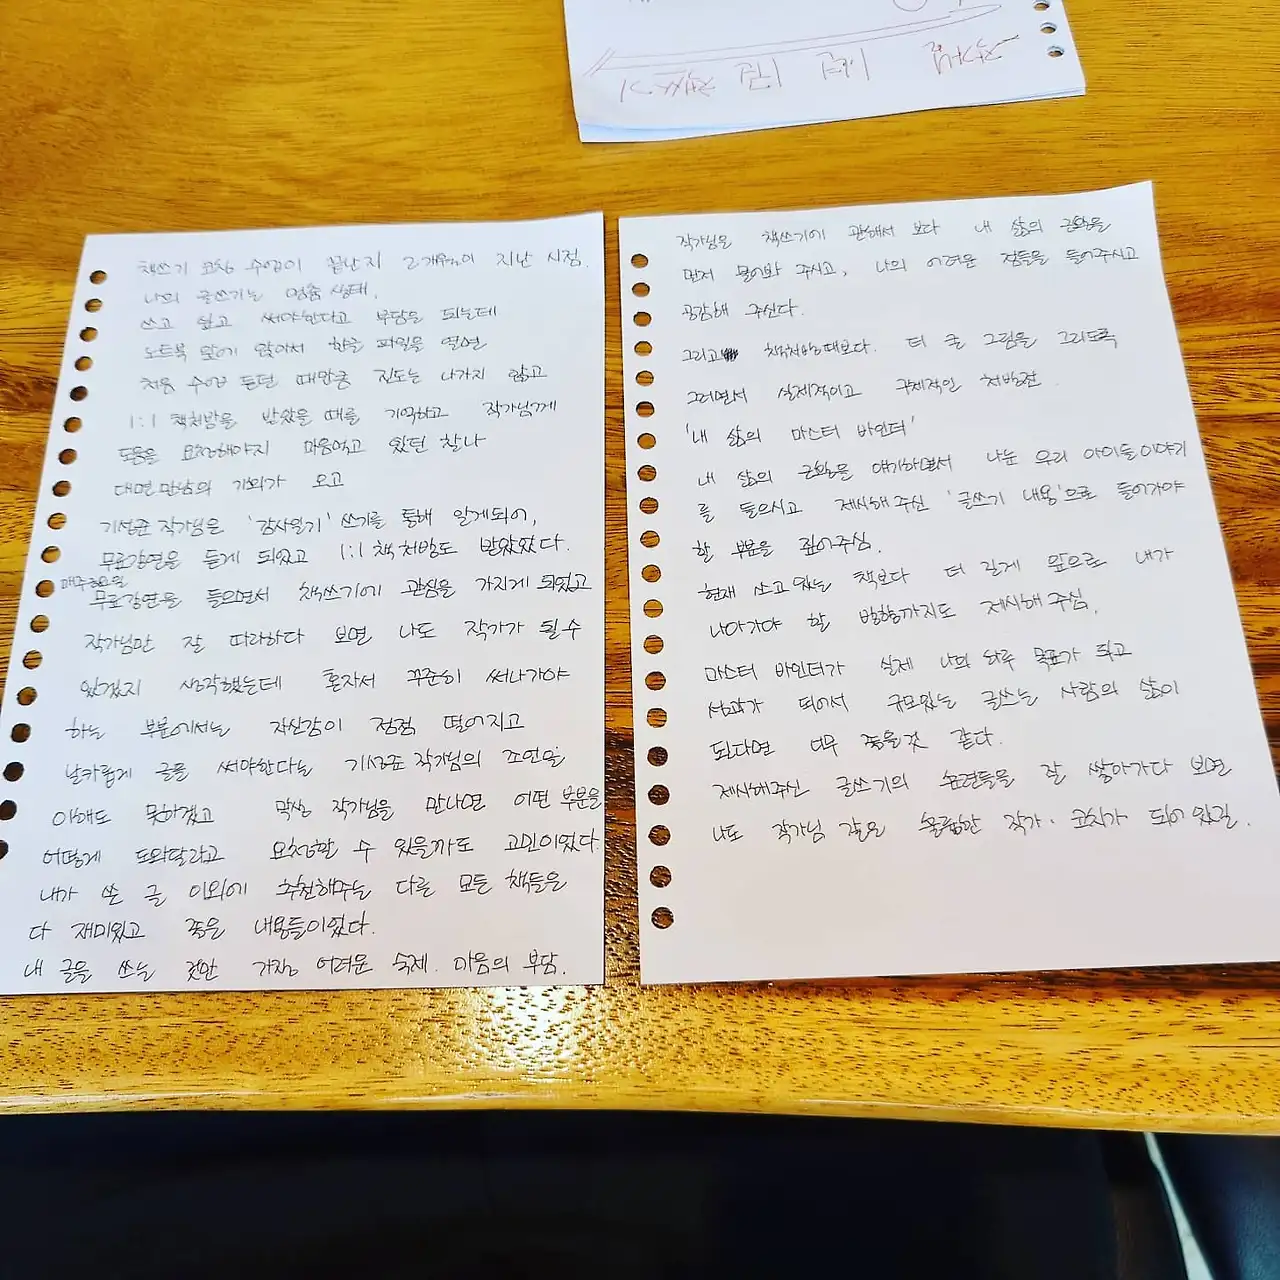 책쓰기 코칭 수업이 끝난지 2개월이 지난 시점.
나의 글쓰기는 멈춤 상태.
쓰고 싶고 써야한다고 부담은 되는데
노트북 앞에 앉아서 한글 파일을 열면
처음 수업 듣던 때만큼 진도는 나가지 않고
1:1 책처방을 받았을 때를 기억하고 작가님께
도움을 요청해야지 마음먹고 있던 찰나
대면만남의 기회가 오고
기성준 작가님은 '감사일기' 쓰기를 통해 알게되어,
무료강연을 듣게 되었고 1:1 책처방도 받았었다.
무료강연을 들으면서 책쓰기에 관심을 가지게 되었고
작가님만 잘 따라하다 보면 나도 작가가 될 수
있겠지 생각했는데 혼자서 꾸준히 써나가야
하는 부분에서는 자신감이 점점 떨어지고
날카롭게 글을 써야한다는 기성준 작가님의 조언을
이해도 못하겠고 막상 작가님을 만나면 어떤 부분을
어떻게 도와달라고 요청할 수 있을까도 고민이었다.
내가 쓴 글 이외에 추천해주는 다른 모든 책들은
다 재미있고 좋은 내용들이었다.
내 글을 쓰는 것만 가장 어려운 숙제. 마음의 부담.
작가님은 책쓰기에 관해서 보다 내 삶의 근황을
먼저 물어봐 주시고, 나의 어려운 점들을 들어주시고
공감해 주신다.
그리고 책처방때보다. 더 큰 그림을 그리도록
그러면서 실제적이고 구체적인 처방전.
'내 삶의 마스터 바인더'
내 삶의 근황을 얘기하면서 나눈 우리 아이들 이야기
를 들으시고 제시해 주신 '글쓰기 내용'으로 들어가야
할 부분을 짚어주심.
현재 쓰고 있는 책보다 더 길게 앞으로 내가
나아가야 할 방향까지도 제시해 주심.
마스터 바인더가 실제 나의 하루 목표가 되고
성과가 되어서 규모있는 글쓰는 사람의 삶이
된다면 너무 좋을것 같다.
제시해주신 글쓰기의 훈련들을 잘 쌓아가다 보면
나도 작가님 같은 훌륭한 작가·코치가 되어 있길.